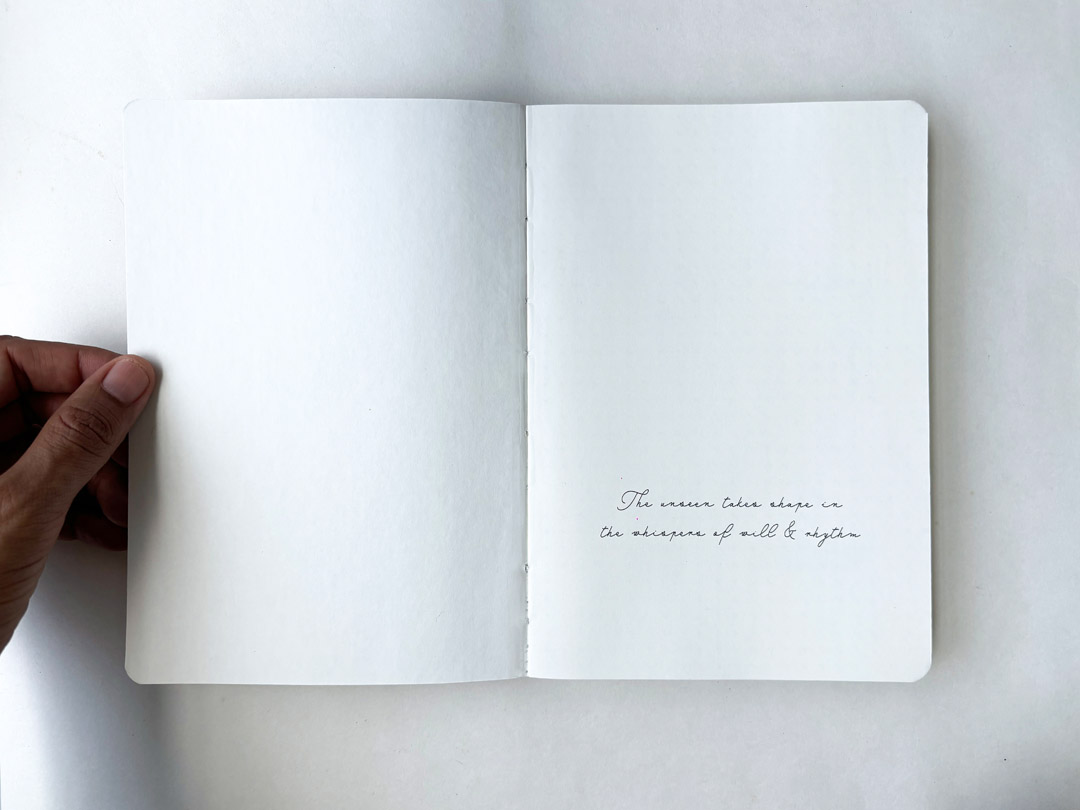 The unseen takes shape in
the whispers of will & rhythm